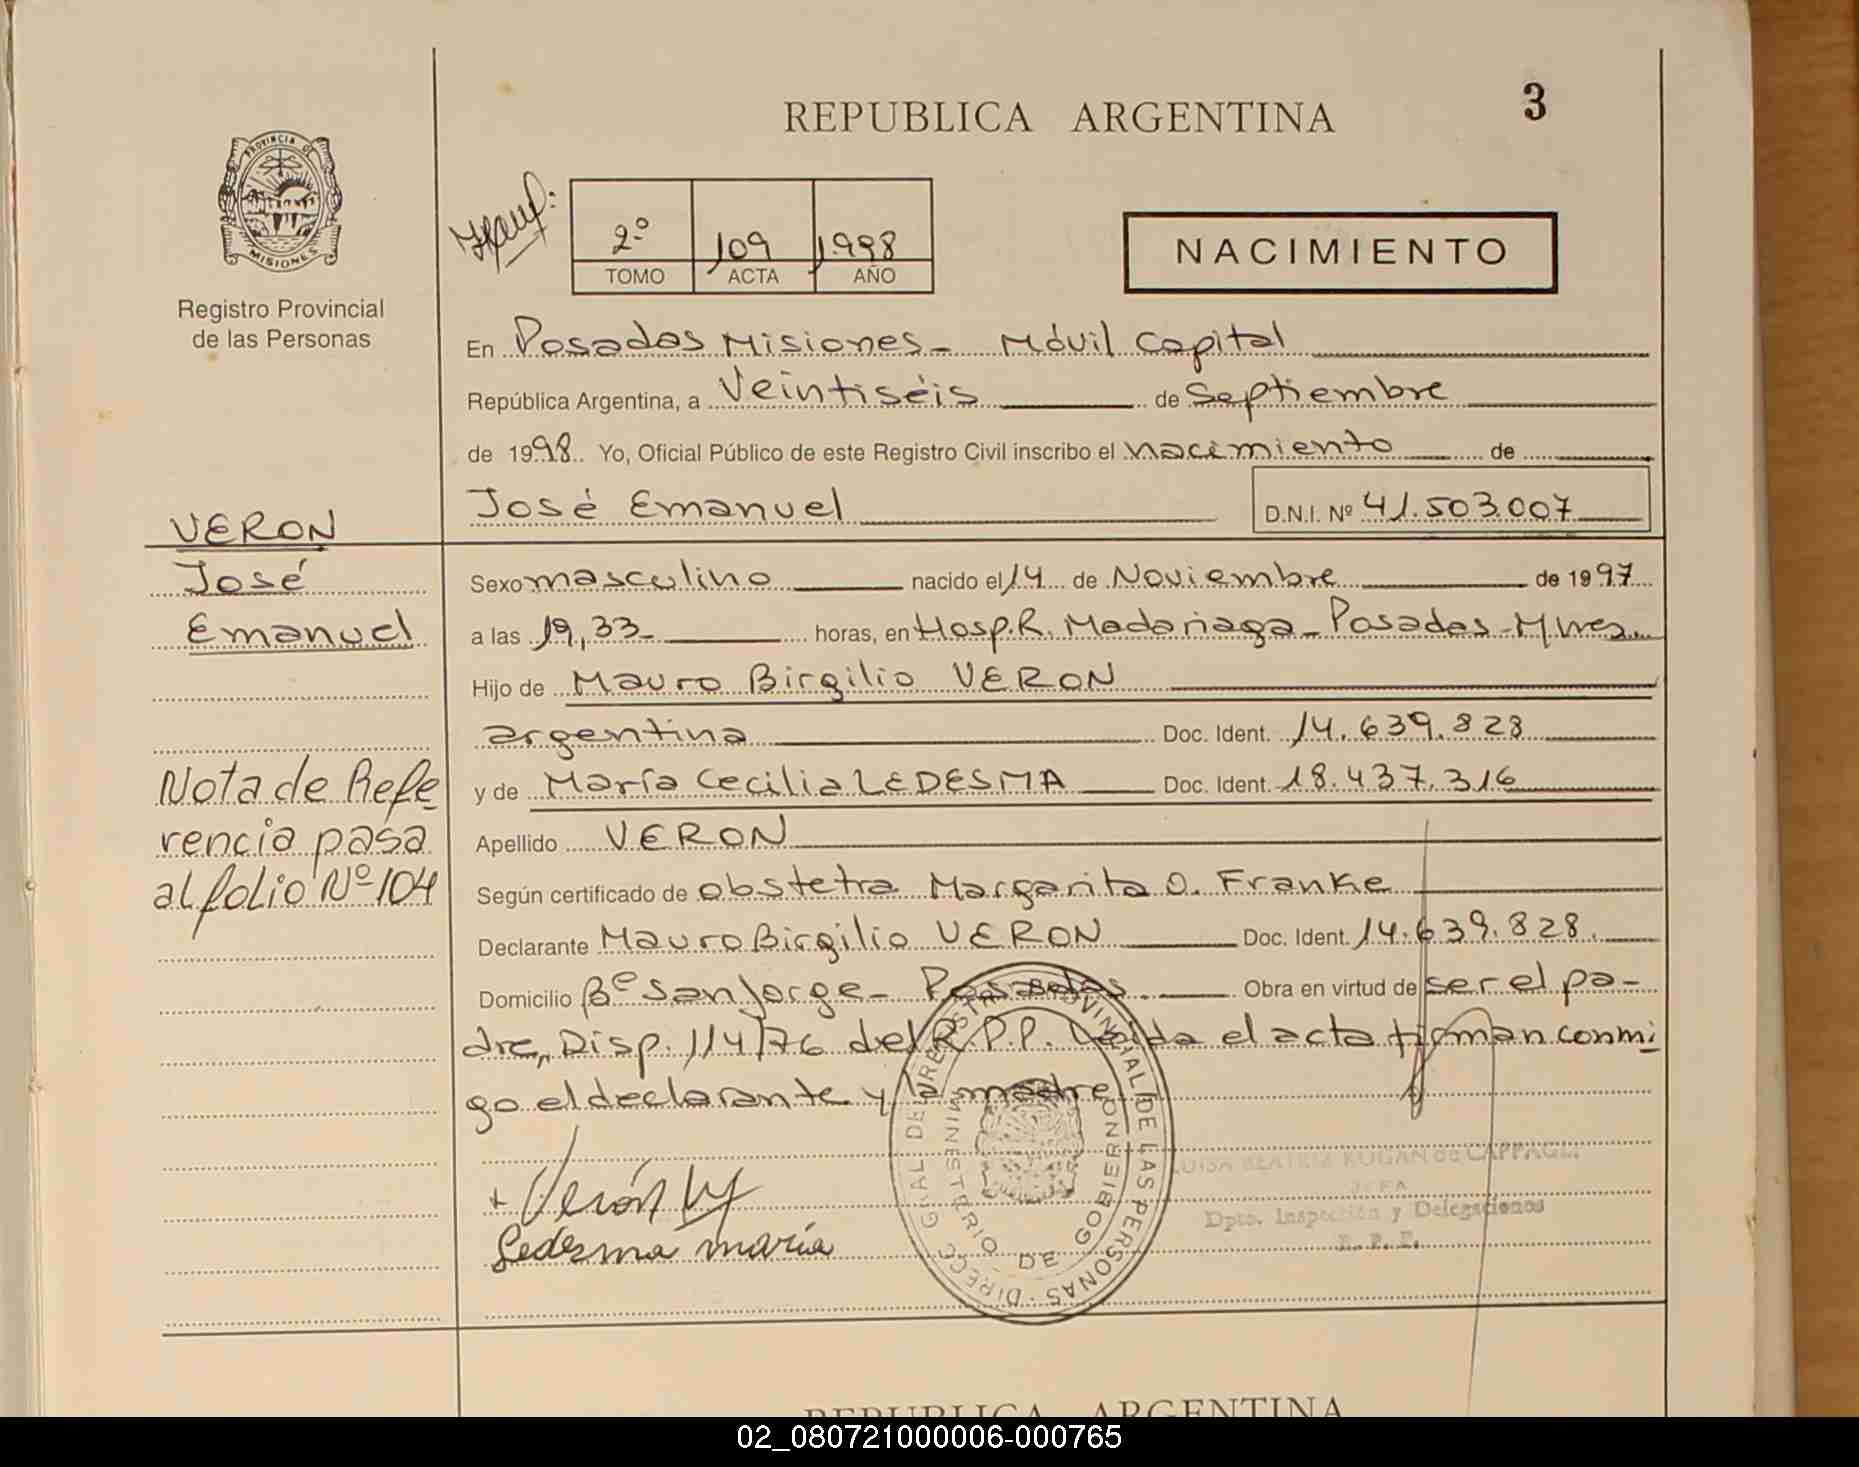 REPUBLICA ARGENTINA
3
PROVINCIA DE
MISIONES
Registro Provincial
de las Personas
2º 109 1998
TOMO ACTA AÑO
NACIMIENTO
En Posadas Misiones - Móvil Capital
República Argentina, a Veintiséis de Septiembre
de 1998. Yo, Oficial Público de este Registro Civil inscribo el nacimiento de
José Emanuel D.N.I. Nº 41.503.007
VERON
José
Emanuel
Sexo masculino nacido el 14 de Noviembre de 1997
a las 19,33 horas, en Hosp. R. Madariaga - Posadas - Mnes.
Hijo de Mauro Birgilio VERON
argentina Doc. Ident. 14.639.828
y de María Cecilia LEDESMA Doc. Ident. 18.437.316
Apellido VERON
Según certificado de obstetra Margarita O. Franke
Declarante Mauro Birgilio VERON Doc. Ident. 14.639.828.
Domicilio Bº San Jorge - Posadas Obra en virtud de ser el pa-
dre, Disp. 114/76 del R.P.P. Leída el acta firman conmi
go el declarante y la madre
Nota de Refe
rencia pasa
al folio Nº 104
Verón M
Ledesma maría
DIRECC. GRAL DE REGISTRO PROVINCIAL DE LAS PERSONAS
MINISTERIO DE GOBIERNO
LUISA BEATRIZ KOGAN de CAPPAGLI
JEFA
Dpto. Inspección y Delegaciones
R. P. P.
REPUBLICA ARGENTINA
02_080721000006-000765